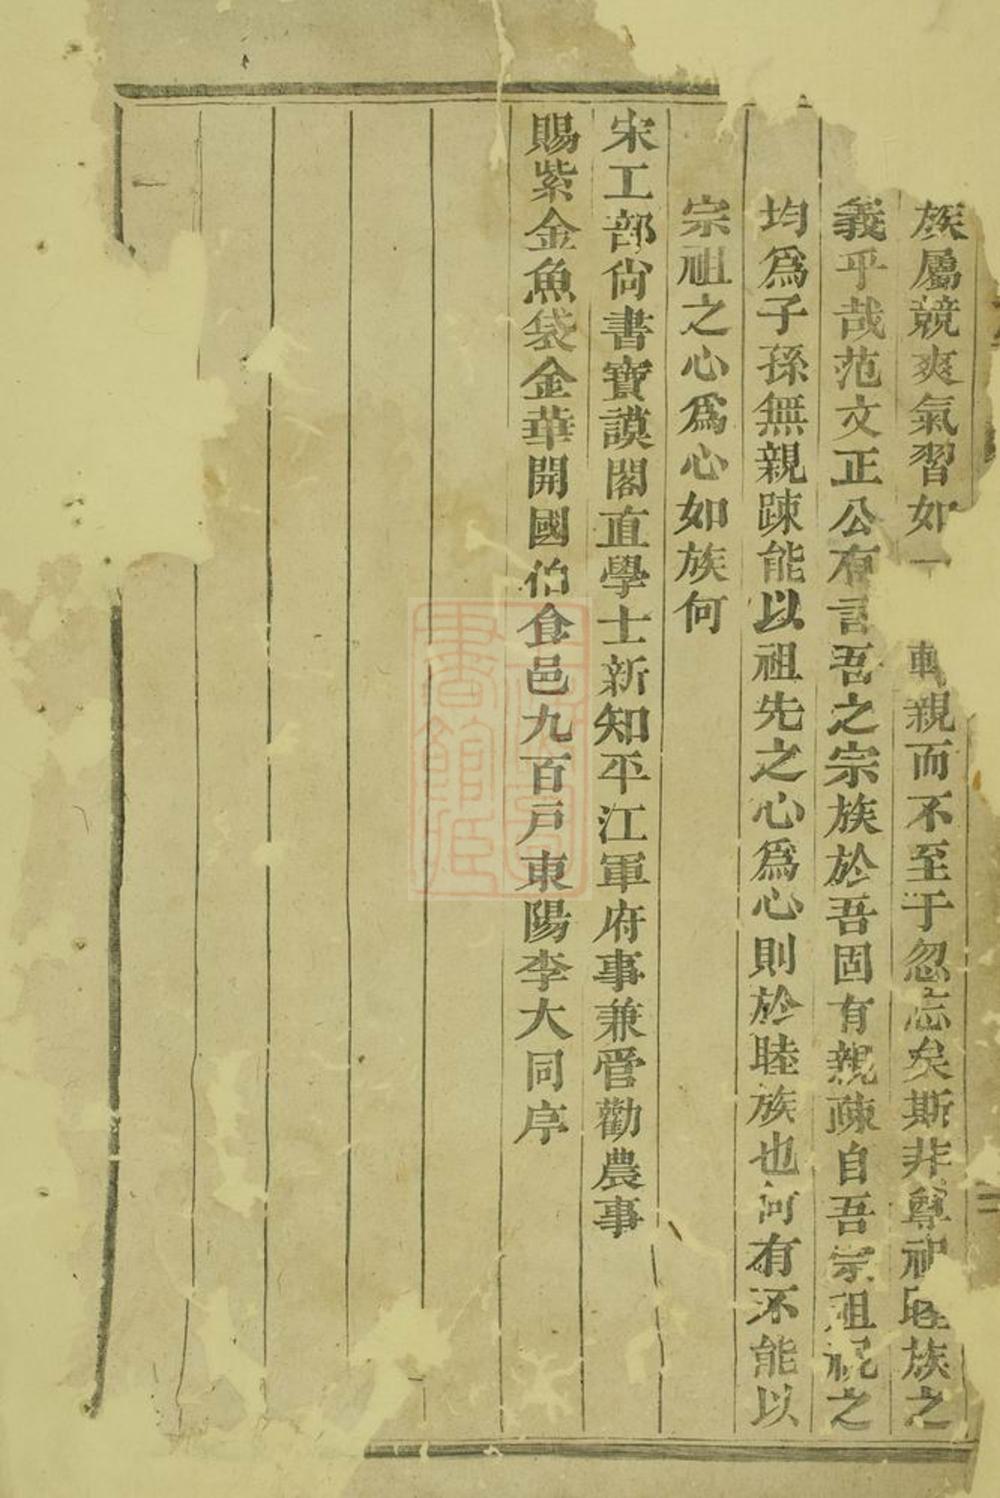 族屬競爽氣習如一 親而不至于忽忘矣斯非尊祖睦族之
義乎哉范文正公有言吾之宗族於吾固有親疎自吾宗祖視之
均爲子孫無親疎能以祖先之心爲心則於睦族也何有不能以
宗祖之心爲心如族何
宋工部尚書寶謨閣直學士新知平江軍府事兼管勸農事
賜紫金魚袋金華開國伯食邑九百戸東陽李大同序